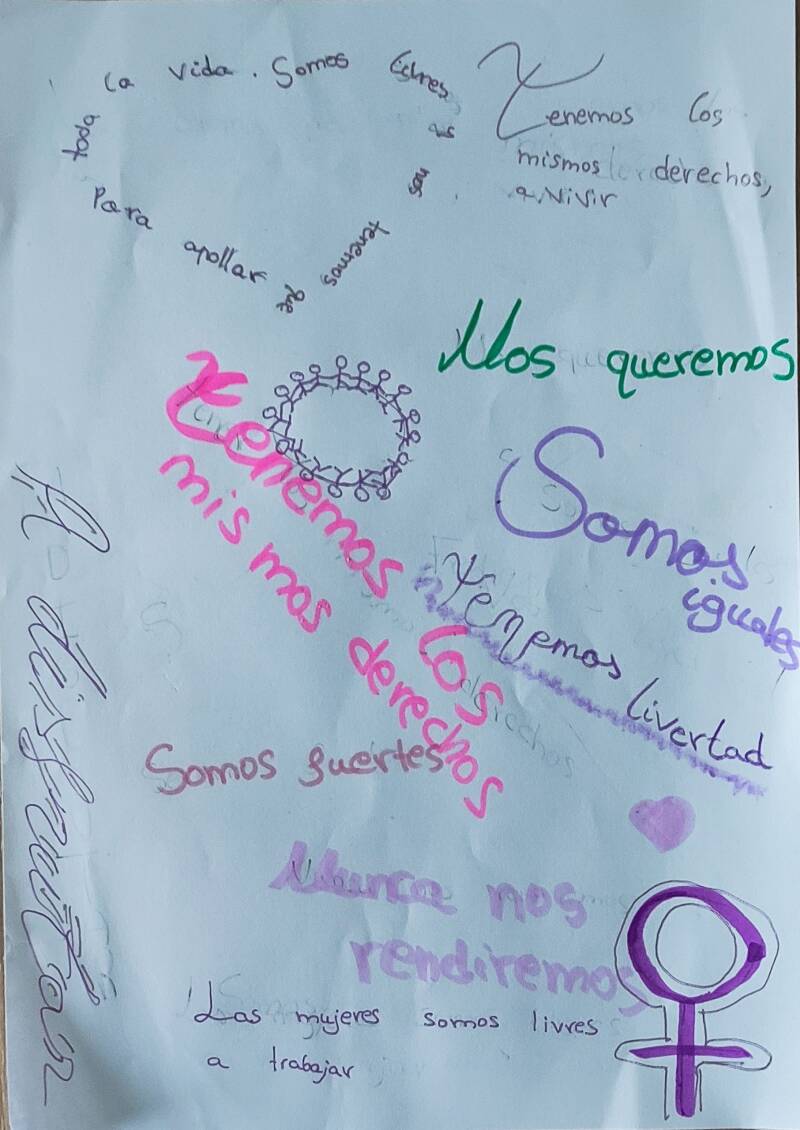 Tenemos los
mismos derechos,
a vivir
Somos libres
nos
tenemos
que
apollar
Para
toda
la vida.
Nos queremos
Tenemos los
mismos derechos
Somos
iguales
Tenemos livertad
A disfrutar
Somos fuertes
Nunca nos
rendiremos
Las mujeres somos livres
a trabajar